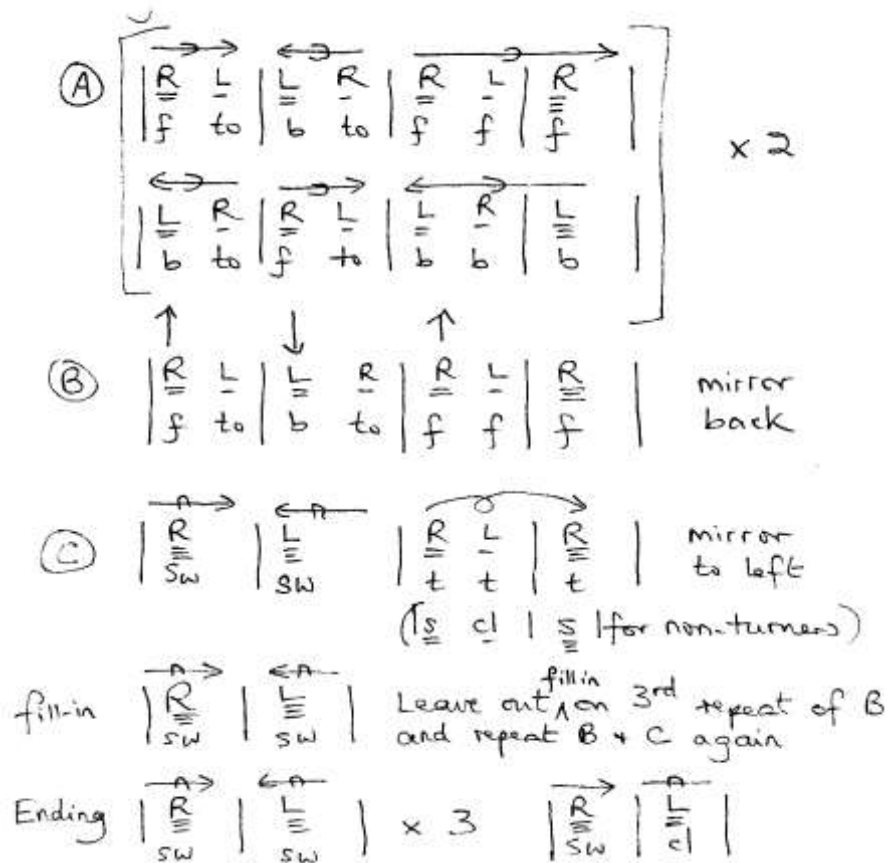 A | R L | L R | R L | R |
f to b to f f f
x 2
| L R | R L | L R | L |
b to f to b b b
B | R L | L R | R L | R | mirror
f to b to f f f back
C | R | L | R L | R | mirror
sw sw t t t to left
(| s cl | s | for non-turners)
fill-in | R | L | Leave out fill in on 3rd repeat of B
sw sw and repeat B + C again
Ending | R | L | x 3 | R | L |
sw sw sw cl